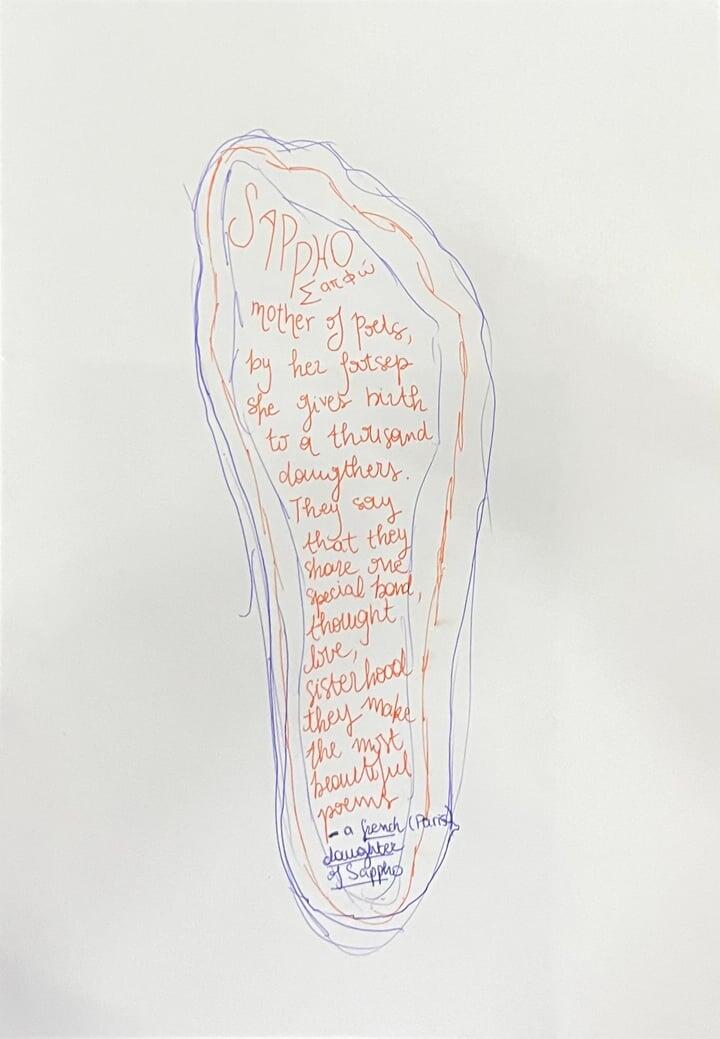 SAPPHO
Σαπφώ
mother of Poets,
by her footsep
she gives birth
to a thousand
daugthers.
They say
that they
share one
special bond,
thought
love,
sisterhood
they make
the most
beautiful
poems
- a french (Paris)
daughter
of Sappho